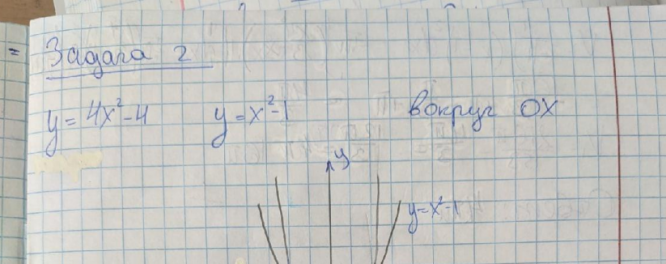 Задача 2
y = 4x²-4 y = x²-1 вокруг OX
y
y=x²-1